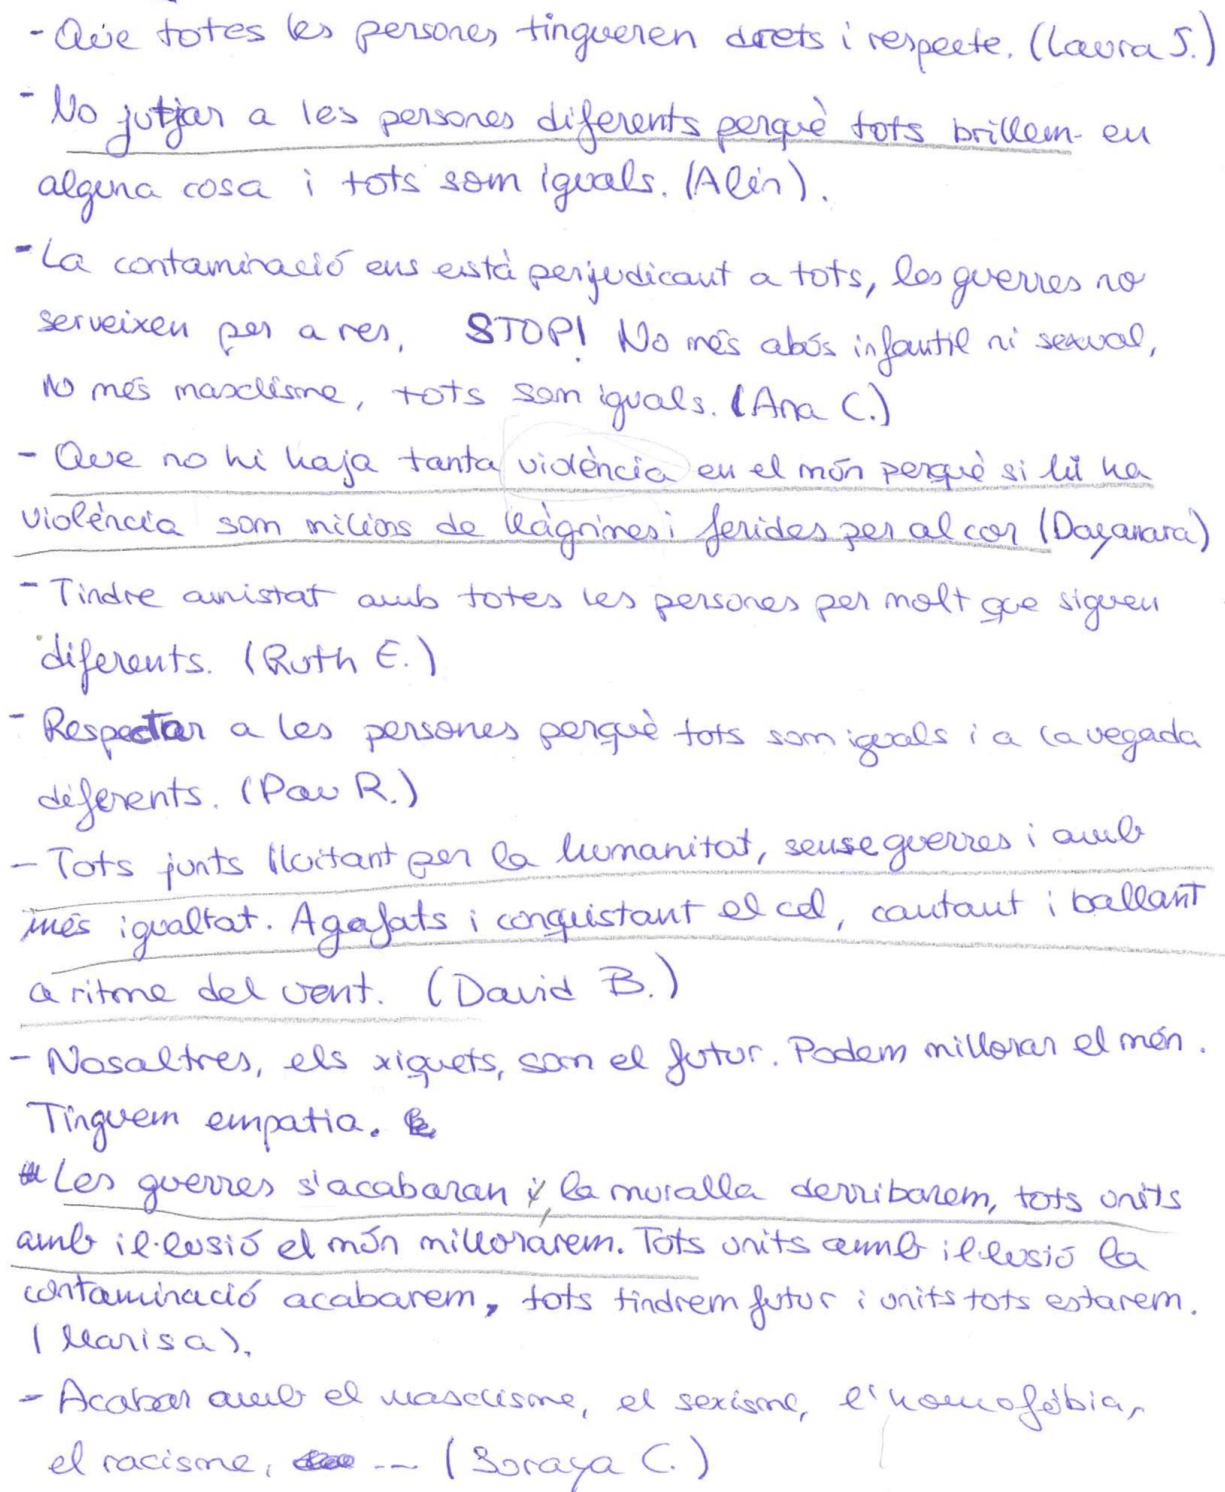 - Que totes les persones tingueren drets i respecte. (Laura S.)
- No jutjar a les persones diferents perquè tots brillem en
alguna cosa i tots som iguals. (Alin).
- La contaminació ens està perjudicant a tots, les guerres no
serveixen per a res, STOP! No més abús infantil ni sexual,
no més masclisme, tots som iguals. (Ana C.)
- Que no hi haja tanta violència en el món perquè si hi ha
violència som milions de llàgrimes i ferides per al cor (Dayanara)
- Tindre amistat amb totes les persones per molt que siguen
diferents. (Ruth E.)
- Respectar a les persones perquè tots som iguals i a la vegada
diferents. (Pau R.)
- Tots junts lluitant per la humanitat, sense guerres i amb
més igualtat. Agafats i conquistant el cel, cantant i ballant
a ritme del vent. (David B.)
- Nosaltres, els xiquets, som el futur. Podem millorar el món.
Tinguem empatia.
Les guerres s'acabaran y la muralla derribarem, tots units
amb il·lusió el món millorarem. Tots units amb il·lusió la
contaminació acabarem, tots tindrem futur i units tots estarem.
(Marisa).
- Acabar amb el masclisme, el sexisme, l'homofòbia,
el racisme, ... (Soraya C.)